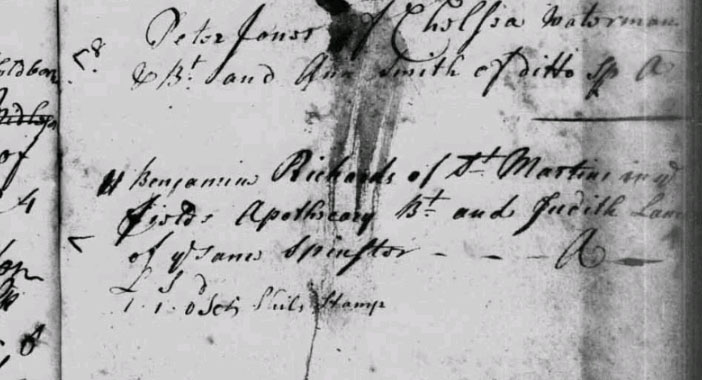 Peter Jones of Chelsea Waterman
& Bt. and Ann Smith of ditto Sp A
11 Benjamine Richards of St. Martins in ye
fields Apothecary Bt. and Judith
of ye same Spinster - - - A
L S d
1 . 1 . 0 Stamp
of
4